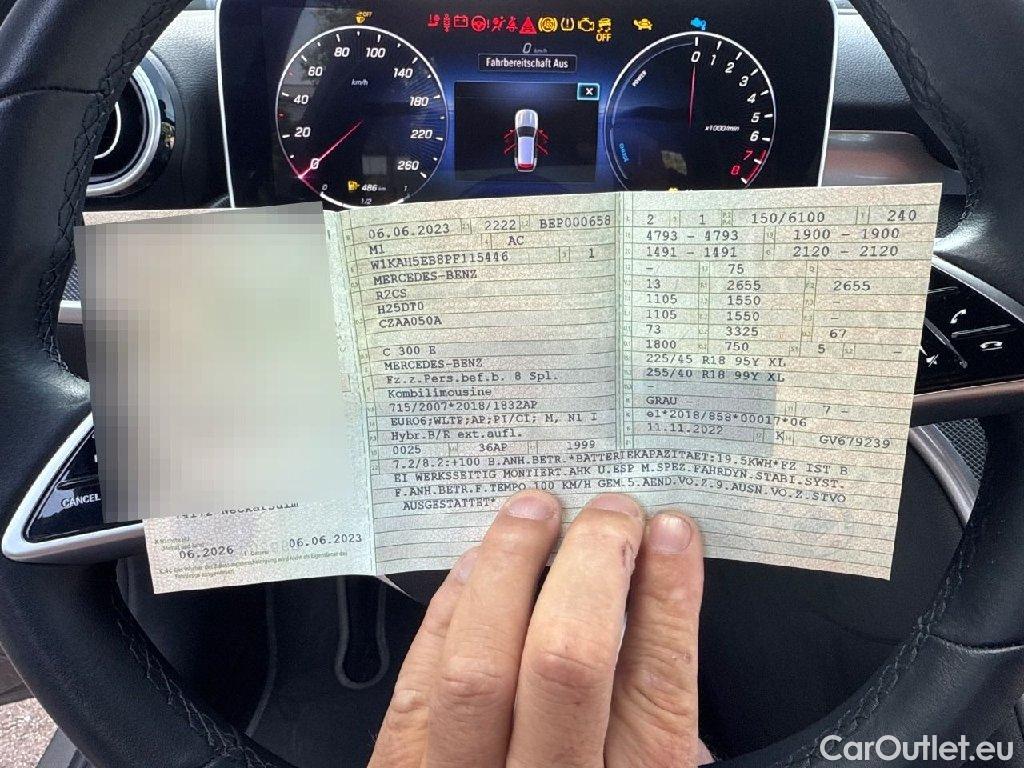 OFF
OFF
0 km/h
Fahrbereitschaft Aus
0 20 40 60 80 100 140 180 220 260
km/h
486 km
0 1/2 1
POWER
CHARGE
0 1 2 3 4 5 6 7 8
x1000/min
CANCEL
06.06.2023 2222 BEP000658
M1 AC
W1KAH5EB8PF115446 1
MERCEDES-BENZ
R2CS
H25DT0
CZAA050A
C 300 E
MERCEDES-BENZ
Fz.z.Pers.bef.b. 8 Spl.
Kombilimousine
715/2007*2018/1832AP
EURO6;WLTP;AP;PI/CI; M, N1 I
Hybr.B/E ext.aufl.
0025 36AP 1999
2 1 150/6100 240
4793 - 4793 1900 - 1900
1491 - 1491 2120 - 2120
- 75 -
13 2655 2655
1105 1550 -
1105 1550 -
73 3325 67
1800 750 5 -
225/45 R18 95Y XL
255/40 R18 99Y XL
-
GRAU - 7 -
e1*2018/858*00017*06
11.11.2022 K GV679239
7.2/8.2:+100 B.ANH.BETR.*BATTERIEKAPAZITAET:19.5KWH*FZ IST B
EI WERKSSEITIG MONTIERT.AHK U.ESP M.SPEZ.FAHRDYN.STABI.SYST.
F.ANH.BETR.F.TEMPO 100 KM/H GEM.5.AEND.VO.Z.9.AUSN.VO.Z.STVO
AUSGESTATTET*
Neckarsulm
06.2026 06.06.2023
CarOutlet.eu